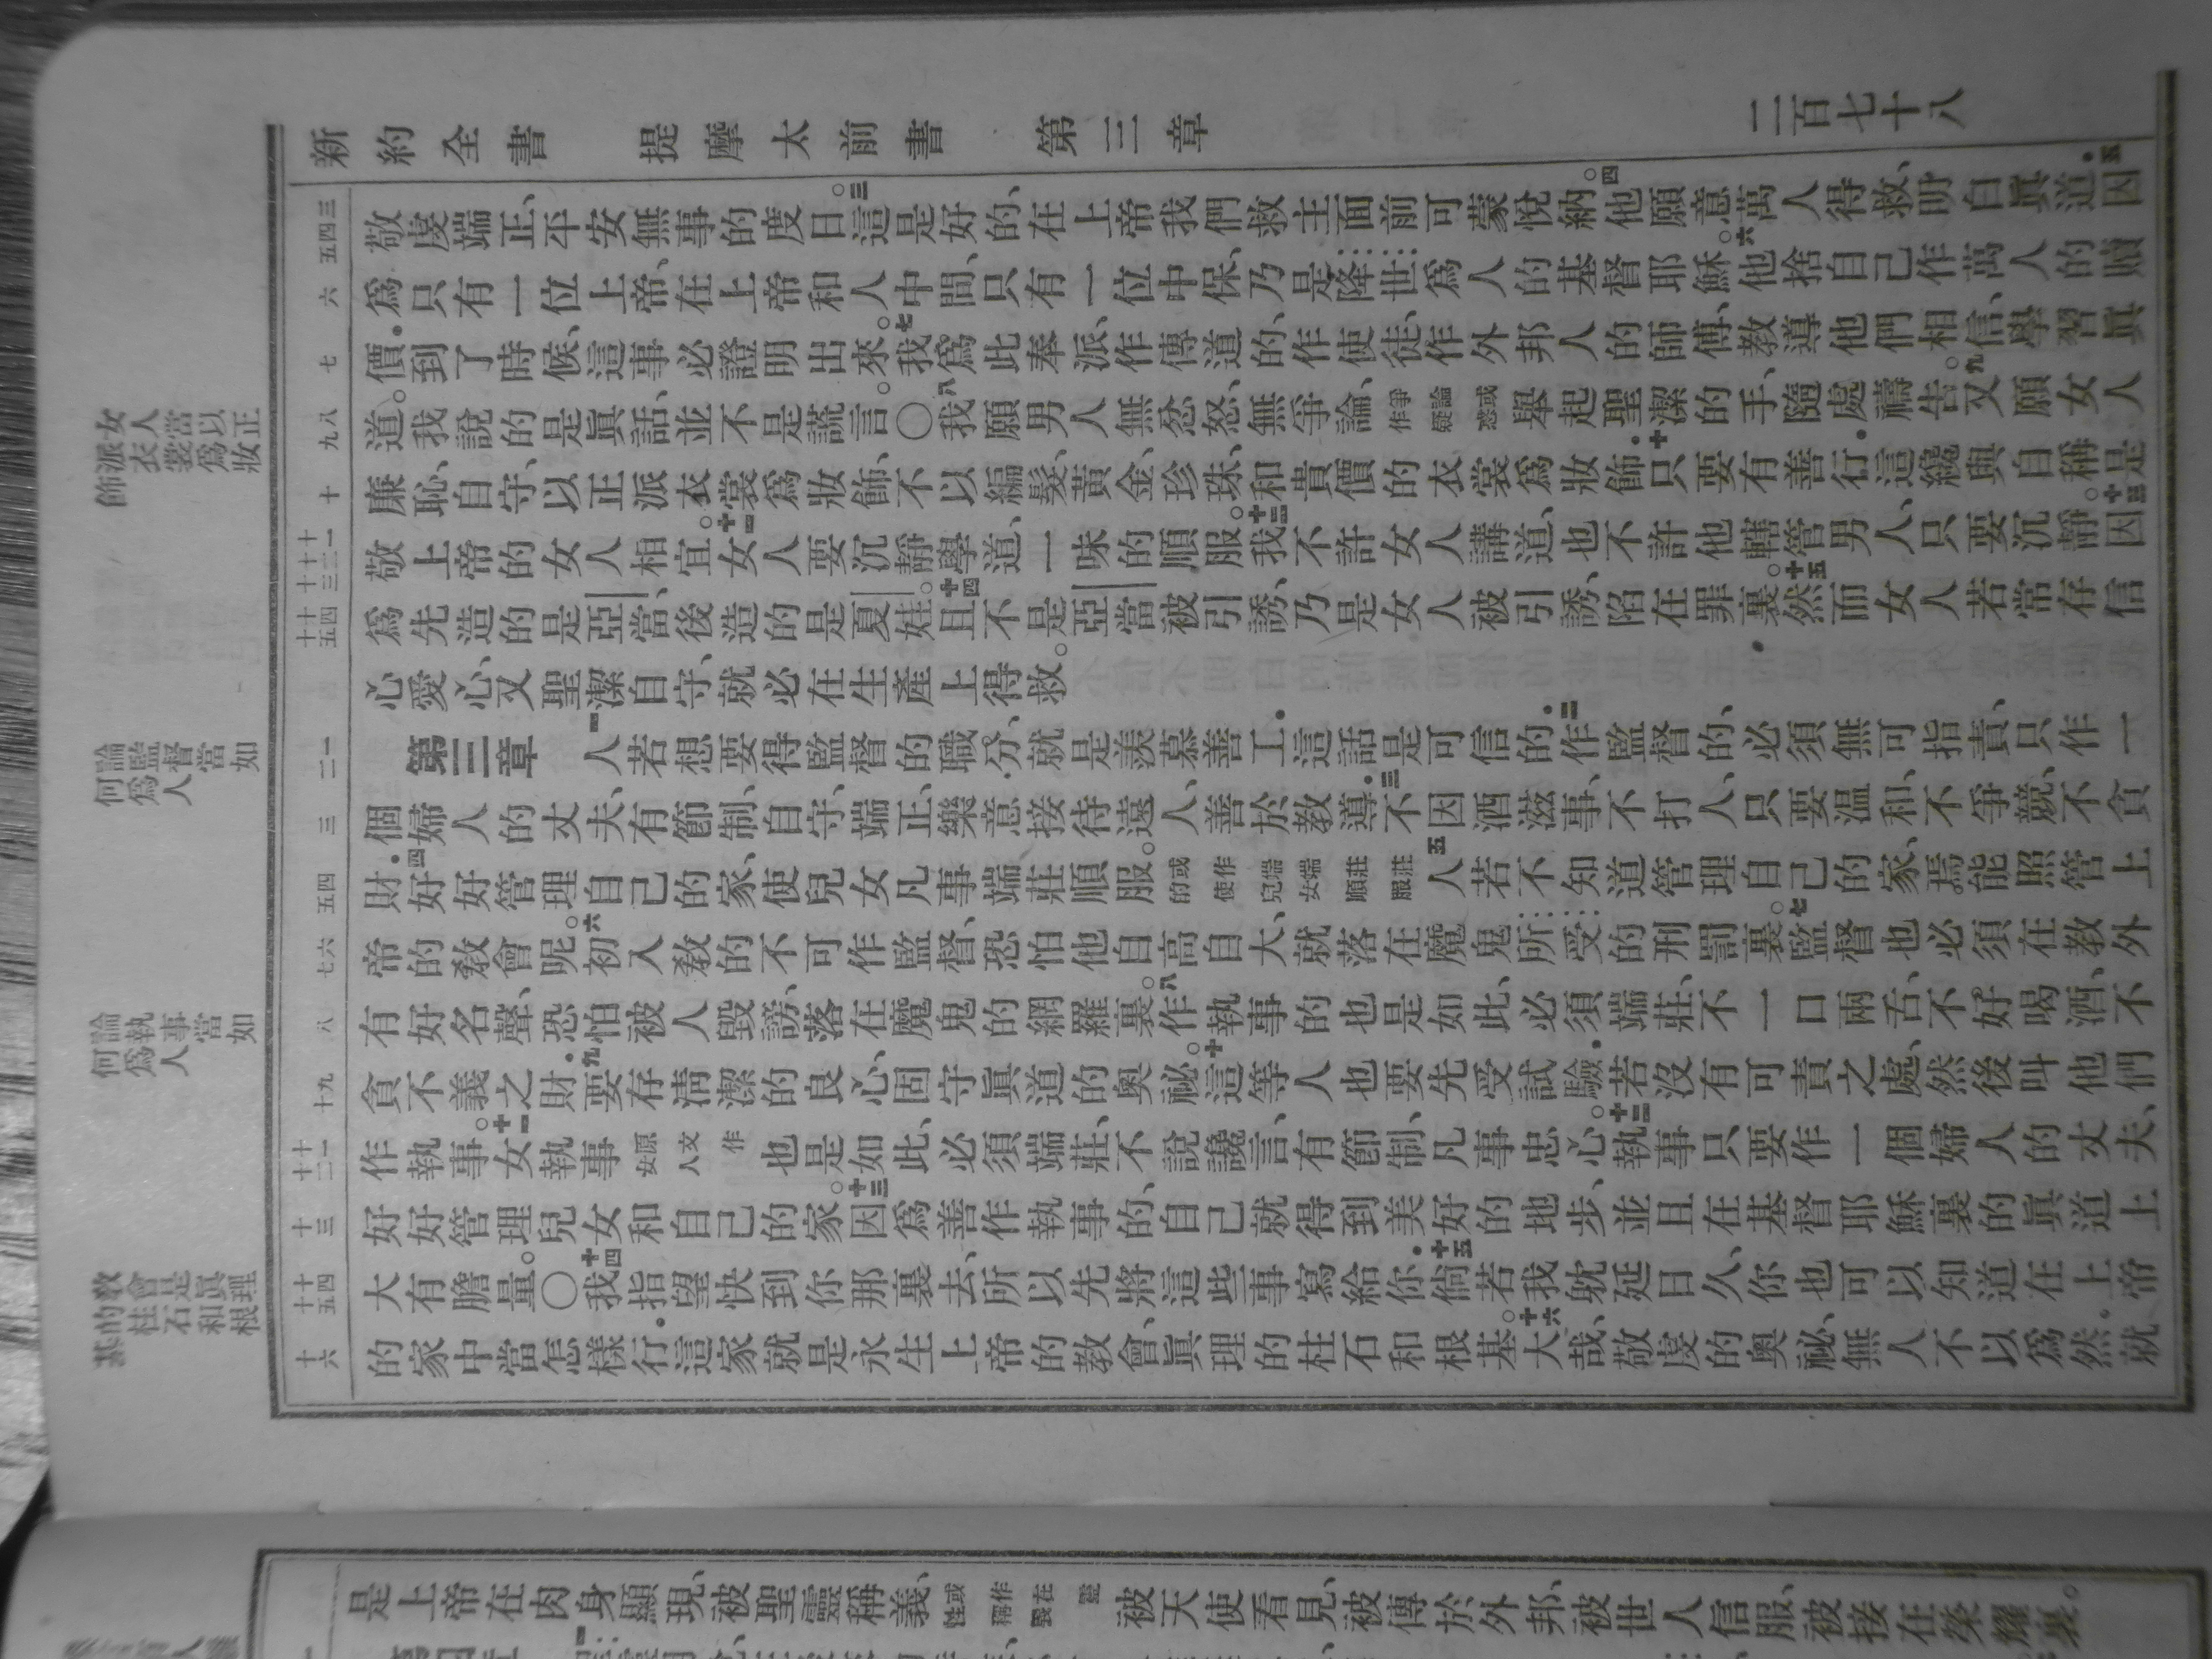 新約全書 提摩太前書 第三章 二百七十八
三 四 五
敬虔端正、平安無事的度日。三這是好的、在上帝我們救主面前可蒙悅納。四他願意萬人得救、明白眞道。五因
六
爲只有一位上帝、在上帝和人中間、只有一位中保、乃是降世爲人的基督耶穌。六他捨自己作萬人的贖
七
價。到了時候、這事必證明出來。七我爲此奉派、作傳道的、作使徒、作外邦人的師傅、教導他們相信、學習眞
八 九
道。我說的是眞話、並不是謊言。〇八我願男人無忿怒、無爭論、爭論或作疑惑舉起聖潔的手、隨處禱告。九又願女人
女人當以正派衣裳爲妝飾
十
廉恥、自守、以正派衣裳爲妝飾、不以編髮、黃金、珍珠、和貴價的衣裳爲妝飾。十只要有善行。這纔與自稱是
十一 十二 十三
敬上帝的女人相宜。十一女人要沉靜學道、一味的順服。十二我不許女人講道、也不許他轄管男人、只要沉靜。十三因
十四 十五
爲先造的是亞當、後造的是夏娃。十四且不是亞當被引誘、乃是女人被引誘、陷在罪裏。十五然而女人若常存信
心愛心、又聖潔自守、就必在生產上得救。
論監督當如何爲人
一 二
第三章 一人若想要得監督的職分、就是羨慕善工。這話是可信的。二作監督的、必須無可指責、只作一
三
個婦人的丈夫、有節制、自守、端正、樂意接待遠人、善於教導。三不因酒滋事、不打人、只要温和、不爭競、不貪
四 五
財。四好好管理自己的家、使兒女凡事端莊順服。或作端端莊莊的使兒女順服五人若不知道管理自己的家、焉能照管上
六 七
帝的教會呢。六初入教的不可作監督、恐怕他自高自大、就落在魔鬼所受的刑罰裏。七監督也必須在教外
論執事當如何爲人
八
有好名聲、恐怕被人毀謗、落在魔鬼的網羅裏。八作執事的也是如此、必須端莊、不一口兩舌、不好喝酒、不
九 十
貪不義之財。九要存清潔的良心、固守眞道的奧祕。十這等人也要先受試驗。若沒有可責之處、然後叫他們
十一 十二
作執事。十一女執事原文作女人也是如此、必須端莊、不說讒言、有節制、凡事忠心。十二執事只要作一個婦人的丈夫、
十三
好好管理兒女和自己的家。十三因爲善作執事的、自己就得到美好的地步、並且在基督耶穌裏的眞道上
教會是眞理的柱石和根基
十四 十五
大有膽量。〇十四我指望快到你那裏去、所以先將這些事寫給你。十五倘若我躭延日久、你也可以知道在上帝
十六
的家中當怎樣行。這家就是永生上帝的教會、眞理的柱石和根基。十六大哉、敬虔的奧祕、無人不以爲然。就
是上帝在肉身顯現、被聖靈稱義、或作在靈性稱義被天使看見、被傳於外邦、被世人信服、被接在榮耀裏。